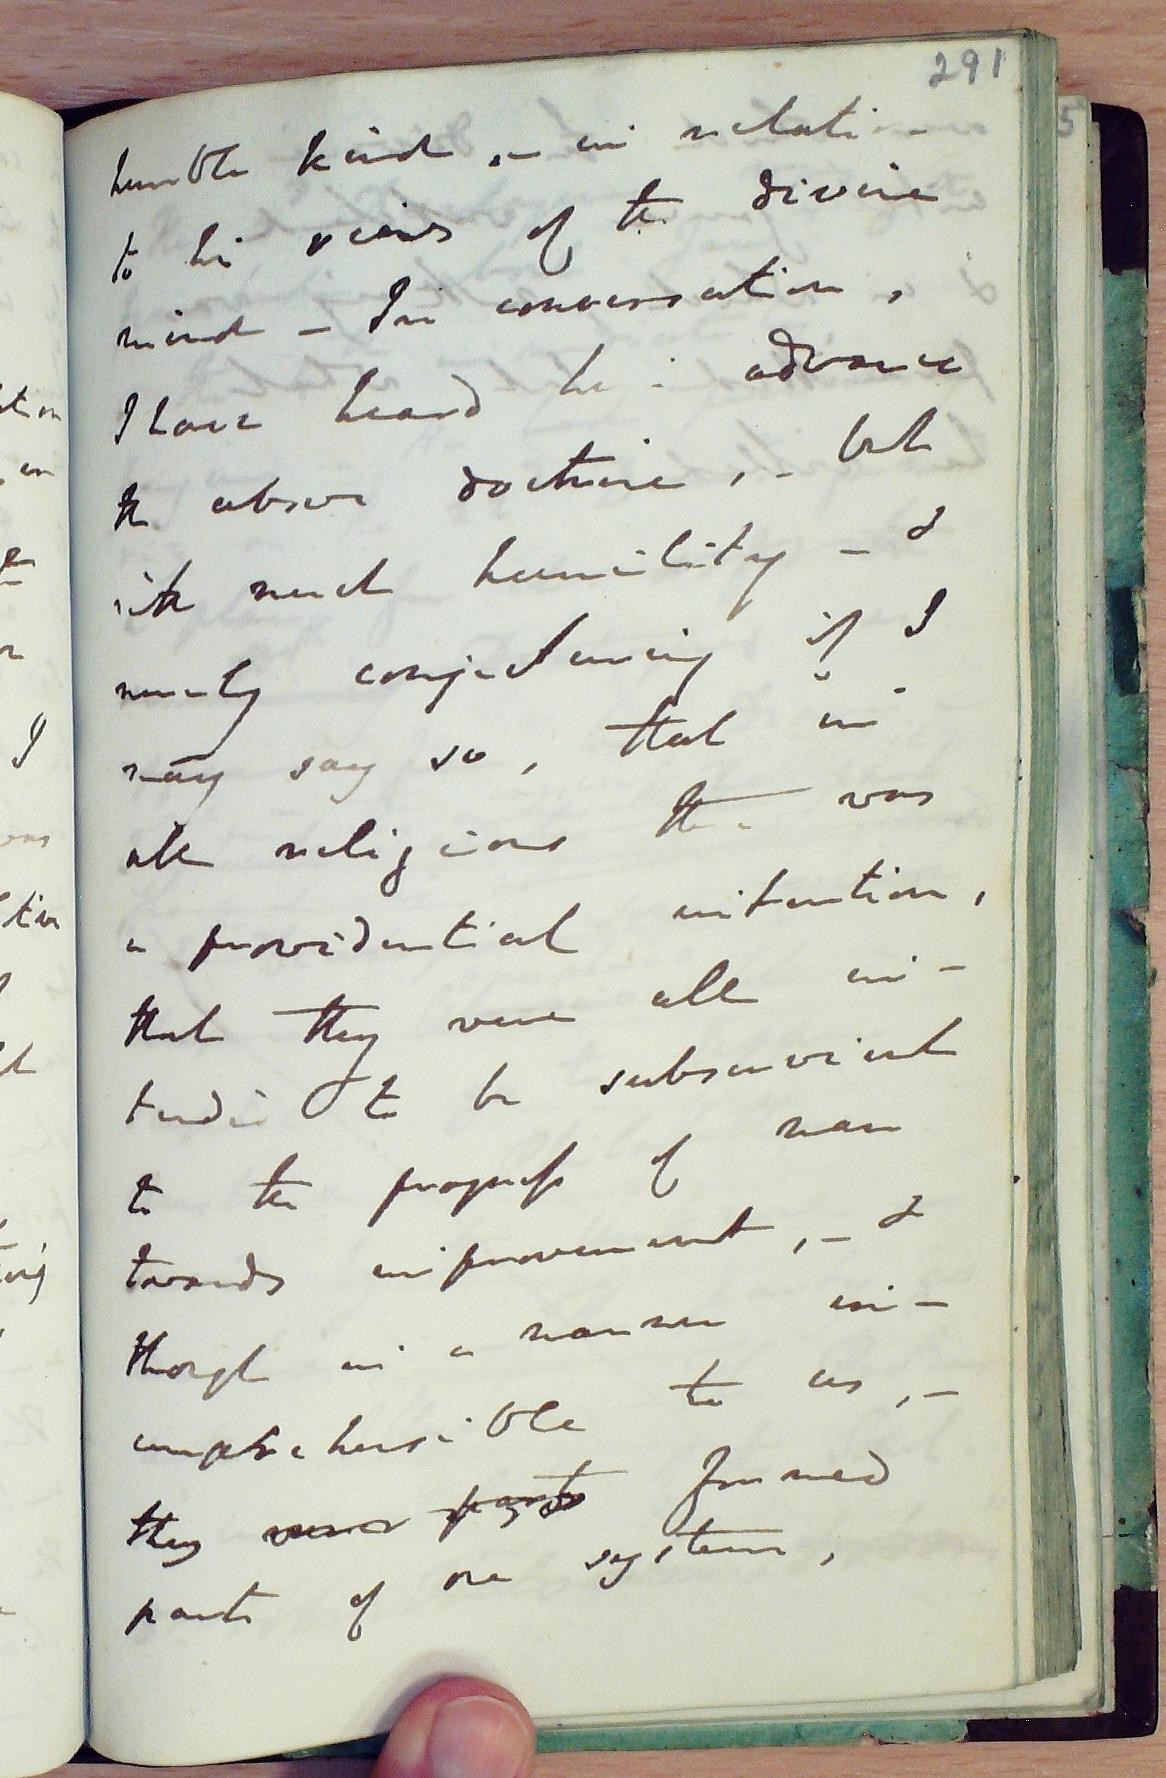 291
humble kind, – in relation
to his views of the divine
mind – In conversation,
I have heard him advance
the above doctrine, – but
with much humility – &
merely conjecturing if I
may say so, that in
all religions there was
a providential intention,
that they were all in-
tended to be subservient
to the progress of man
towards improvement, – &
though in a manner in-
comprehensible to us, –
they were parts formed
parts of one system,